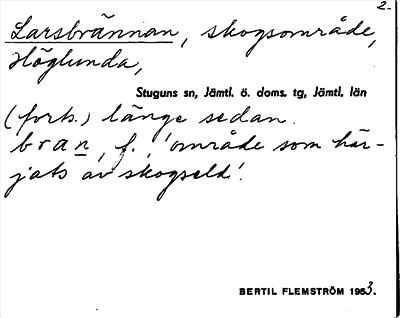 2.
Larsbrännan, skogsområde,
Höglunda,
Stuguns sn, Jämtl. ö. doms. tg, Jämtl. län
(forts.) länge sedan.
bran, f., 'område som här-
jats av skogseld'.
BERTIL FLEMSTRÖM 1953.